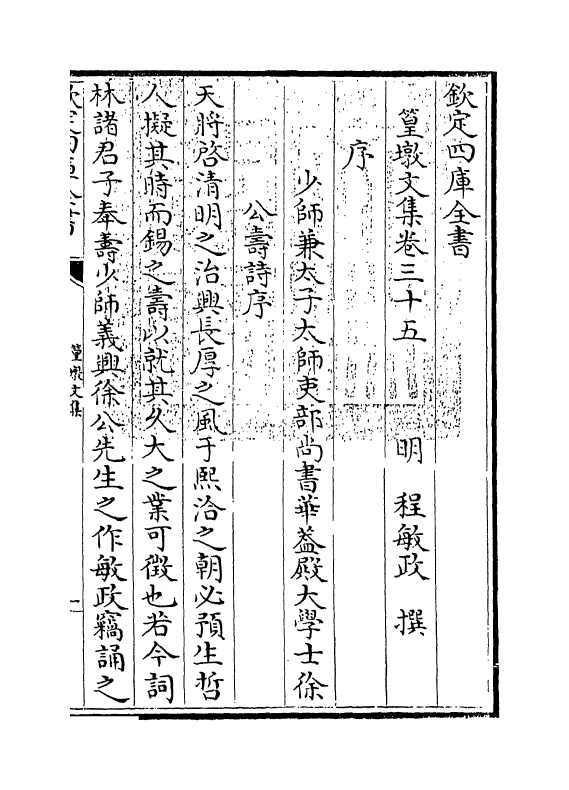 欽定四庫全書
篁墩文集卷三十五　明　程敏政　撰
序
少師兼太子太師吏部尚書華蓋殿大學士徐
公壽詩序
天將啓清明之治興長厚之風于熙洽之朝必預生哲
人擬其時而錫之壽以就其久大之業可徵也若今詞
林諸君子奉壽少師義興徐公先生之作敏政竊誦之
欽定四庫全書
篁墩文集
一